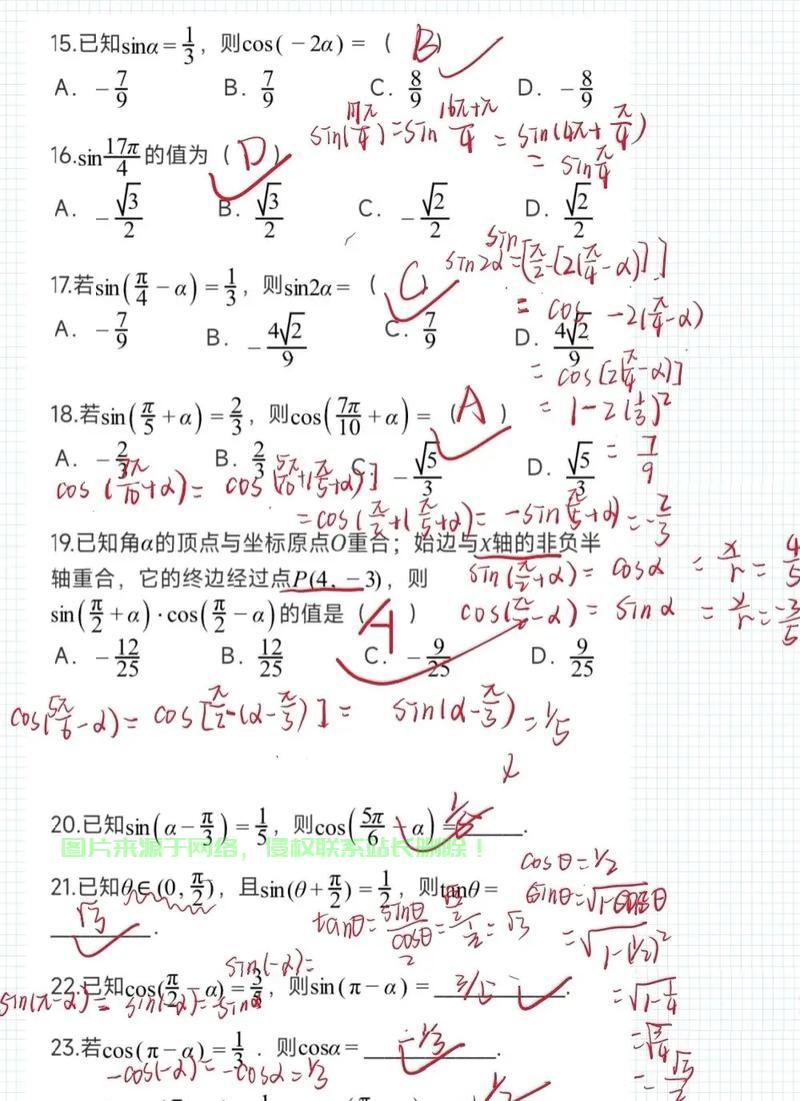 15.已知sinα=1/3，则cos(－2α)=（ B ）
A. －7/9 B. 7/9 C. 8/9 D. －8/9
sin(17π/4)=sin (16π+π)/4 = sin(4π+π/4)
= sin π/4
16.sin 17π/4 的值为（ D ）
A. －√3/2 B. √3/2 C. －√2/2 D. √2/2
sin
sin2α=[π/2-[2(π/4-α)]]
17.若sin(π/4－α)=1/3，则sin2α=（ C ）
= cos -2(π/4-α)
A. －7/9 B. －4√2/9 C. 7/9 D. 4√2/9
= cos[2(π/4-α)]
18.若sin(π/5+α)=2/3，则cos(7π/10+α)=（ A ）
= 1-2(1/3)²
= 7/9
A. －2/3 B. 2/3 C. －√5/3 D. √5/3
cos(7π/10+α)= cos[5π/10+(π/5+α)]
=cos(π/2+(π/5+α)= -sin(π/5+α)=-2/3
19.已知角α的顶点与坐标原点O重合；始边与x轴的非负半
轴重合，它的终边经过点P(4,－3)，则
sin(π/2+α)= cosα = x/r = 4/5
sin(π/2+α)·cos(π/2－α)的值是（ A ）
cos(π/2-α)= sinα = y/r = -3/5
A. －12/25 B. 12/25 C. －9/25 D. 9/25
cos(5π/6-α)= cos[π/2-(α-π/3)]= sin(α-π/3)=1/5
20.已知sin(α－π/3)=1/5，则cos(5π/6－α)=1/5.
图片来源于网络，侵权联系站长删除！
cosθ=1/2
21.已知θ∈(0,π/2)，且sin(θ+π/2)=1/2，则tanθ=
√3.
tanθ=sinθ/cosθ= =√3
=√1-(1/2)²
sin(-α)=
22.已知cos(π/2－α)=3/5，则sin(π－α)=3/5.
sin(π-α)= sin(-α)=sinα
=√1-1/4
=√3/4
=√3/2
23.若cos(π－α)=1/3．则cosα=-1/3.
-cos(-α)=-cosα=1/3